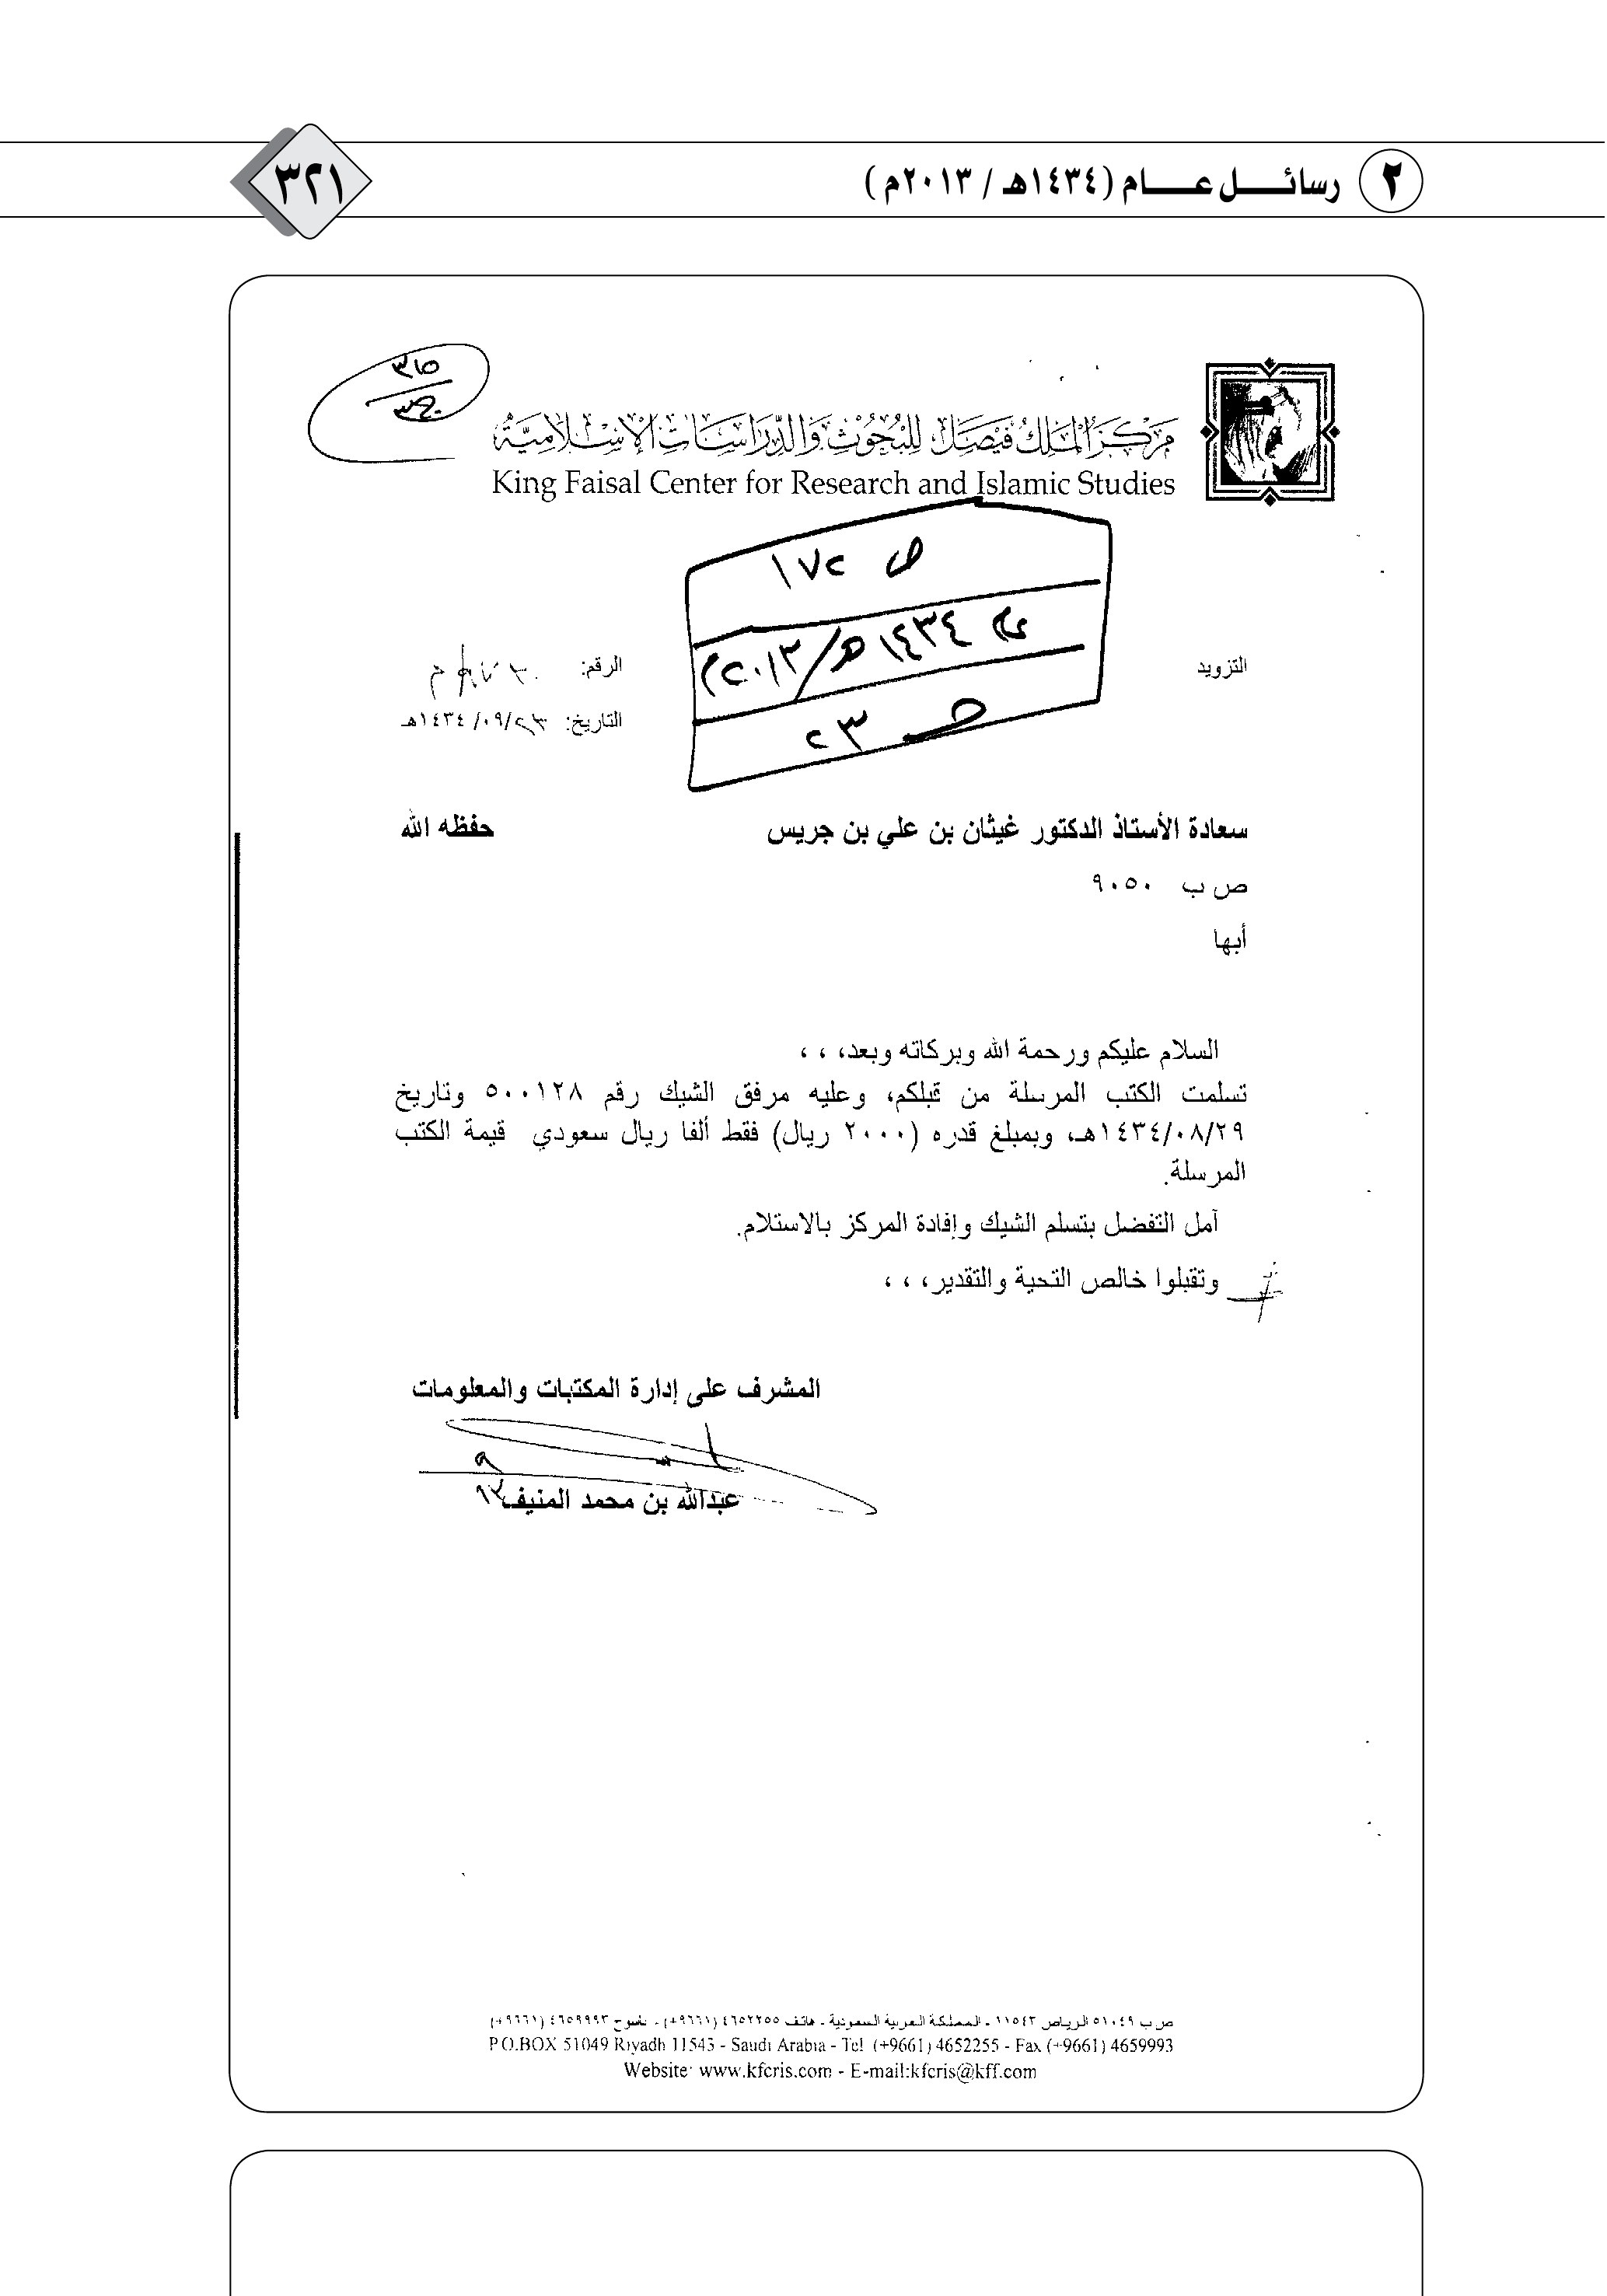 ٢ رسائل عام (١٤٣٤هـ / ٢٠١٣م)
٣٢١
٣١٥
مركز الملك فيصل للبحوث والدراسات الإسلامية
King Faisal Center for Research and Islamic Studies
ص ١٧٢
١٤٣٤هـ/٢٠١٣م
حـ ٢٣
التزويد
الرقم:
التاريخ: ٢٣/٠٩/١٤٣٤هـ
سعادة الأستاذ الدكتور غيثان بن علي بن جريس حفظه الله
ص ب ٩٠٥٠
أبها
السلام عليكم ورحمة الله وبركاته وبعد، ، ،
تسلمت الكتب المرسلة من قبلكم، وعليه مرفق الشيك رقم ٥٠٠١٢٨ وتاريخ
١٤٣٤/٠٨/٢٩هـ، وبمبلغ قدره (٢٠٠٠ ريال) فقط ألفا ريال سعودي قيمة الكتب
المرسلة.
آمل التفضل بتسلم الشيك وإفادة المركز بالاستلام.
وتقبلوا خالص التحية والتقدير، ، ،
المشرف على إدارة المكتبات والمعلومات
عبدالله بن محمد المنيف
ص ب ٥١٠٤٩ الرياض ١١٥٤٣ - المملكة العربية السعودية - هاتف ٤٦٥٢٢٥٥ (٩٦٦١+) - ناسوخ ٤٦٥٩٩٩٣ (٩٦٦١+)
P.O.BOX 51049 Riyadh 11543 - Saudi Arabia - Tel (+9661) 4652255 - Fax (+9661) 4659993
Website: www.kfcris.com - E-mail:kfcris@kff.com